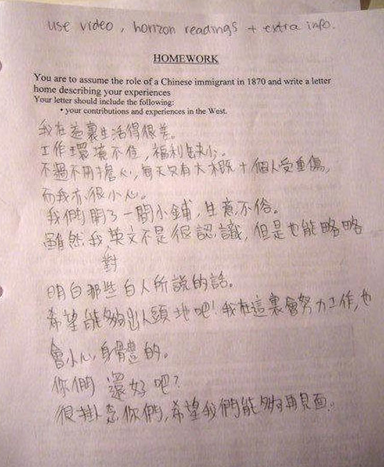 use video, horizon readings + extra info.
HOMEWORK
You are to assume the role of a Chinese immigrant in 1870 and write a letter
home describing your experiences
Your letter should include the following:
• your contributions and experiences in the West.
我在這裏生活得很差。
工作環境不佳，福利缺少。
不過不用擔心，每天只有大概十個人受重傷，
而我亦很小心。
我們開了一間小鋪，生意不俗。
雖然我英文不是很認識，但是也能略略
對
明白那些白人所說的話。
希望能夠出人頭地吧！我在這裏會努力工作，也
會小心身體的。
你們還好吧？
很掛念你們，希望我們能夠再見面。